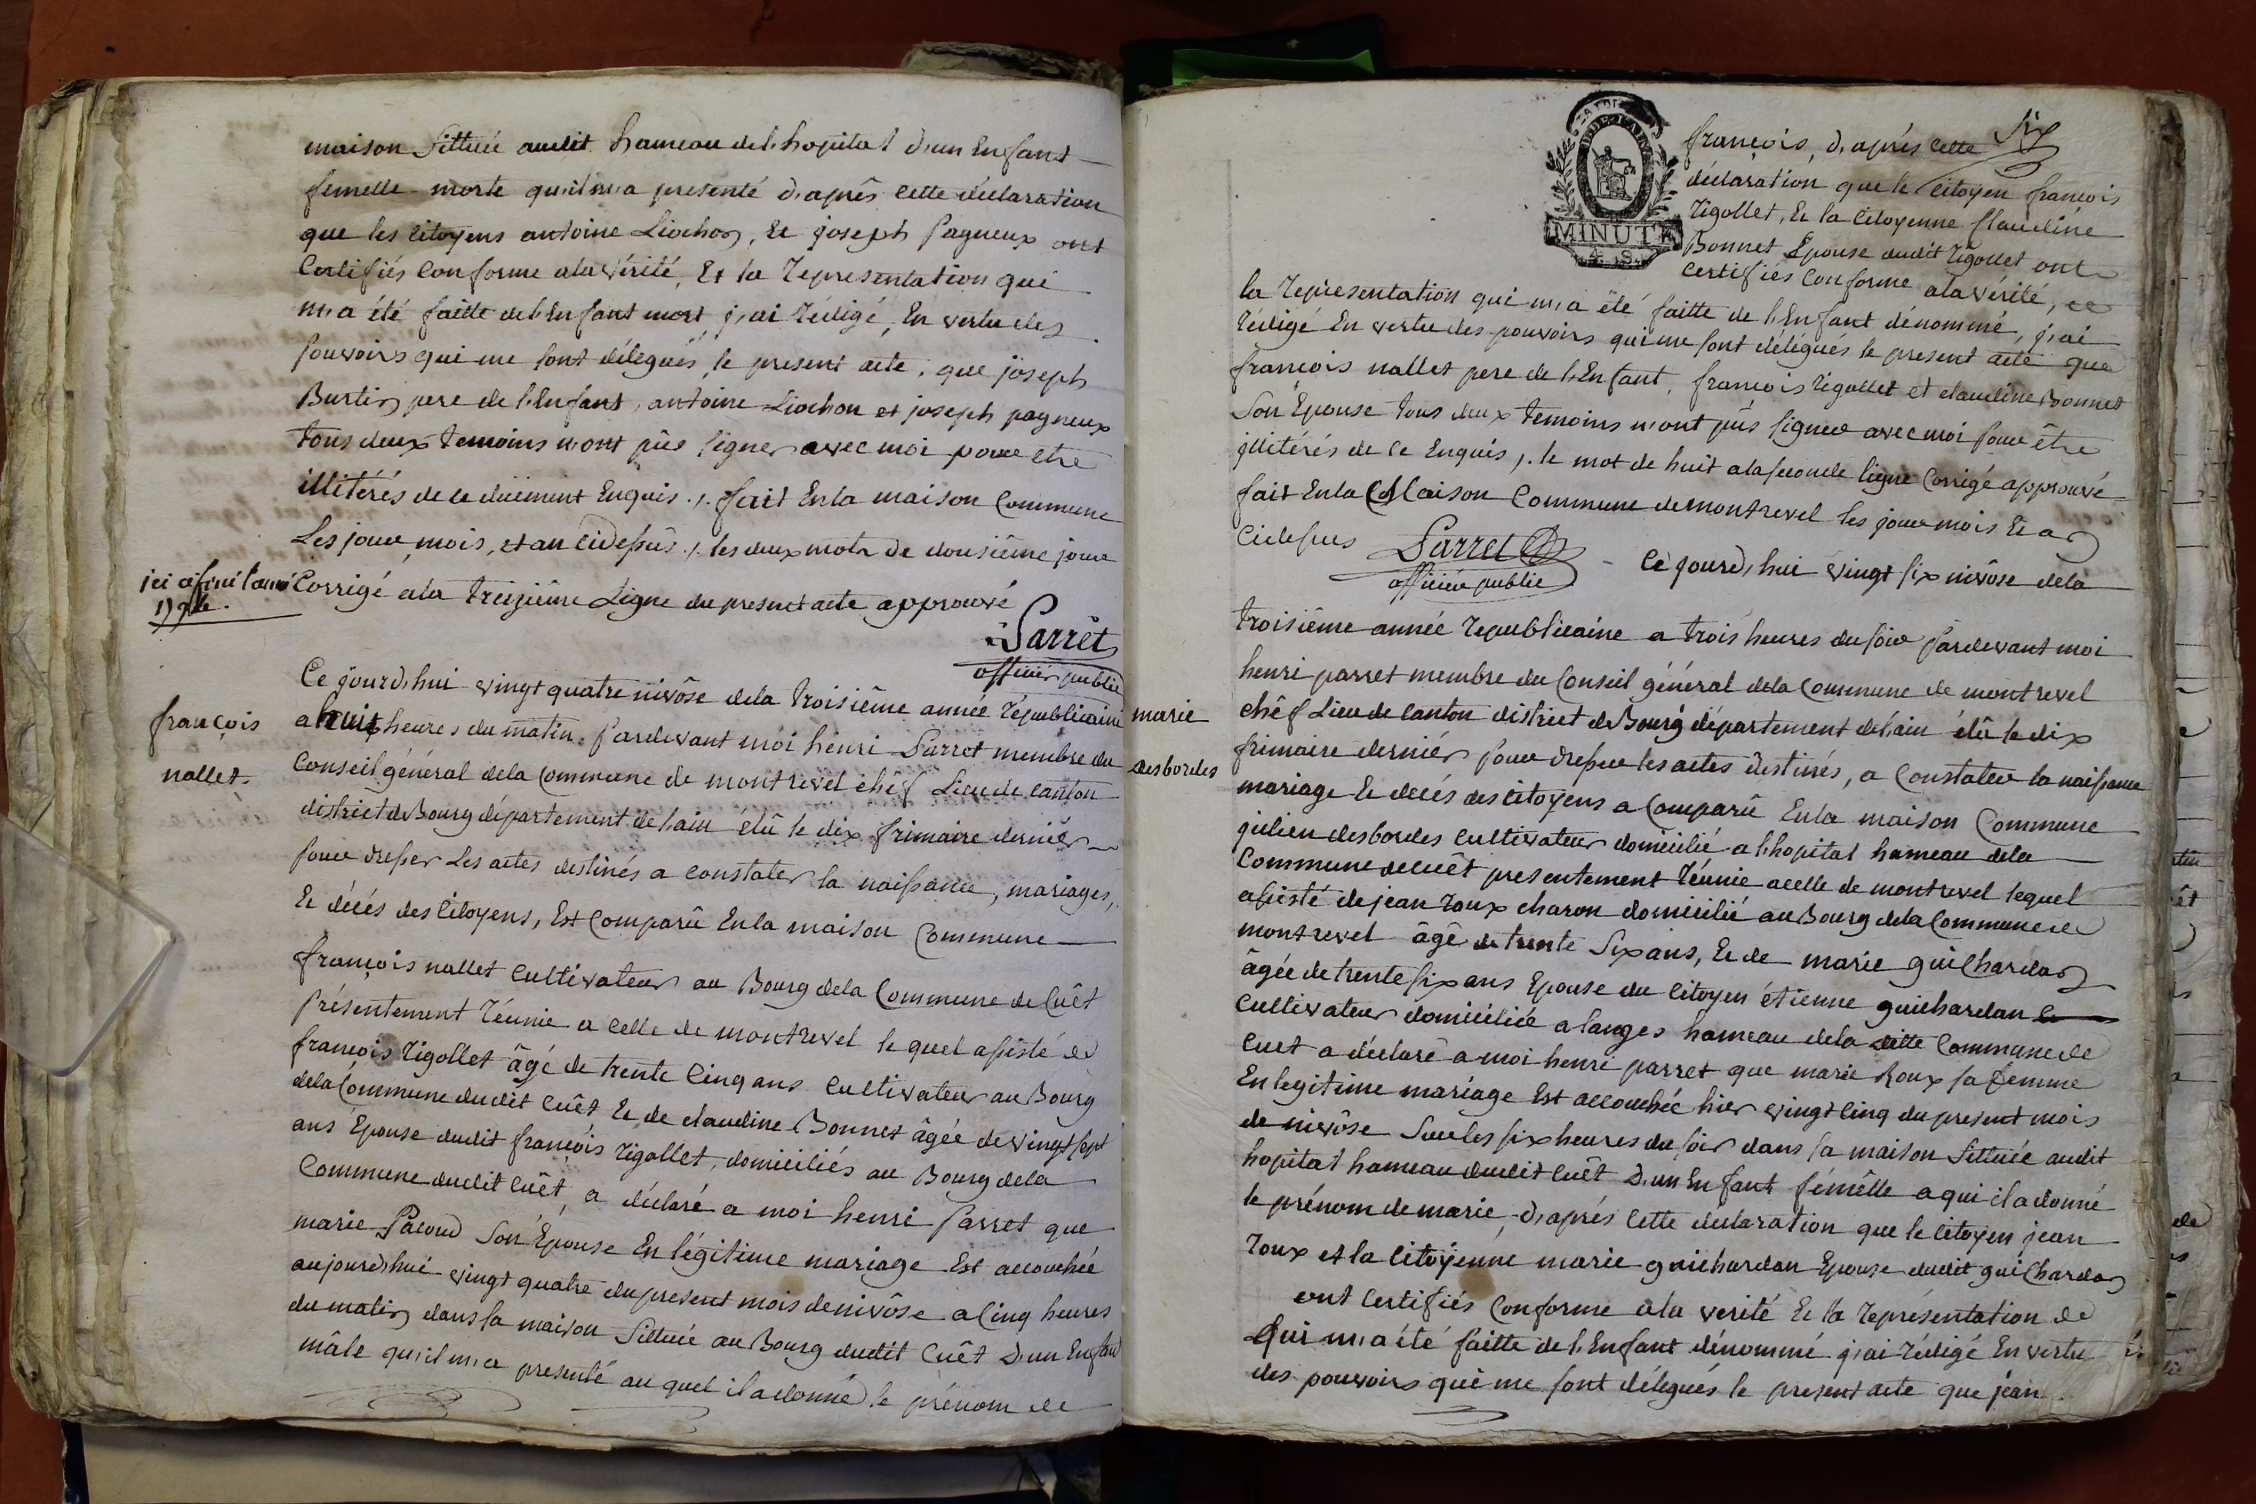 maison sittuée audit hameau de l,hopital d,un Enfant
femelle morte qu,il m,a presenté d,aprês cette déclaration
que les citoyens antoine Liochon, et joseph pagneux ont
Certifiés Conforme a la vérité, Et la Representation qui
m,a été faitte de l,Enfant mort, j,ai rédigé, En vertu des
pouvoirs qui me sont délegués, le present acte, que joseph
Burtin pere de l,Enfant, antoine Liochon et joseph pagneux
tous deux temoins n,ont pûs signer avec moi pour etre
illitérés de ce duëment Enquis ./. fait En la maison Commune
Les jour, mois, et an cidessus ./. les deux mots de dousième jour
Corrigé a la treizième Ligne du present acte approuvé
ici a fini l'année
1794.
Parret
officier public
françois
nallet.
Ce jourd,hui vingt quatre nivôse de la troisième année républicaine
a huit heures du matin. pardevant moi henri Parret membre du
Conseil général de la Commune de montrevel chéf Lieu de canton
district de Bourg département de l,ain élû le dix frimaire dernier
pour dresser Les actes destinés a constater la naissance, mariages,
Et décés des Citoyens, Est Comparû En la maison Commune
françois nallet cultivateur au Bourg de la Commune de Cuêt
présentement réunie a celle de montrevel le quel assisté de
françois Rigollet âgé de trente Cinq ans cultivateur au Bourg
de la Commune dudit Cuêt Et de claudine Bonnet âgée de vingt sept
ans Epouse dudit françois Rigollet, domiciliés au Bourg de la
Commune dudit Cuêt, a déclaré a moi henri Parret que
marie Pacoud son Epouse En légitime mariage Est accouchée
aujourd,hui vingt quatre du present mois de nivôse a Cinq heures
du matin dans sa maison sittuée au Bourg dudit Cuêt d,un Enfant
mâle qu,il m,a presenté au quel il a donné le prénom de
MINUTE
4. S.
Six
françois, d,aprés cette
déclaration que le Citoyen françois
Rigollet, Et la Citoyenne Claudine
Bonnet Epouse dudit Rigollet ont
Certifiés Conforme a la vérité, et
la Representation qui m,a été faitte de l,Enfant dénommé, j,ai
rédigé En vertu des pouvoirs qui me sont délégués le present acte que
françois nallet pere de l,Enfant, françois Rigollet et claudine Bonnet
son Epouse tous deux temoins n,ont pûs signer avec moi pour être
illitérés de ce Enquis ./. le mot de huit a la seconde ligne Corrigé approuvé
fait En la Maison Commune de montrevel les jour mois Et an
Cidessus
Parret
officier public
marie
desbordes
Ce jourd,hui vingt six nivôse de la
troisième année républicaine a trois heures du soir pardevant moi
henri parret membre du Conseil général de la Commune de montrevel
chéf Lieu de canton district de Bourg département de l,ain élû le dix
frimaire derniér pour dresser les actes destinés, a Constater la naissance
mariage Et décés des Citoyens a Comparû En la maison Commune
julien desbordes cultivateur domicilié a l,hopital hameau de la
Commune de Cuêt presentement réunie a celle de montrevel lequel
assisté de jean Roux charon domicilié au Bourg de la Commune de
montrevel âgé de trente six ans, Et de marie guichardan
âgée de trente six ans Epouse du Citoyen étienne guichardan
Cultivateur domiciliée a langes hameau de la ditte Commune de
Cuet a déclaré a moi henri parret que marie Roux sa femme
En legitime mariage Est accouchée hier vingt cinq du present mois
de nivôse sur les six heures du soir dans sa maison sittuée audit
hopital hameau dudit Cuêt d,un Enfant fémêlle a qui il a donné
le prénom de marie, d,aprés Cette déclaration que le Citoyen jean
Roux et la Citoyenne marie guichardan Epouse dudit guichardan
ont Certifiés Conforme a la verité Et la représentation de
Qui m,a été faitte de l,Enfant dénommé j,ai rédigé En vertu
des pouvoirs qui me sont délegués le present acte que jean